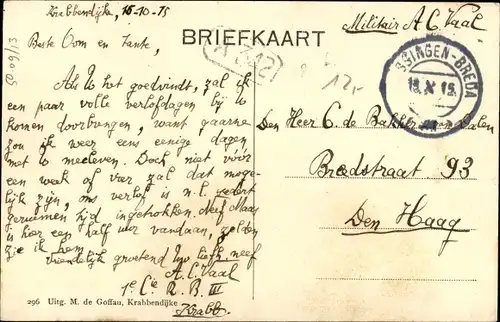 Krabbendijke, 16-10-'15
Militair A. C. Vaal
Beste Oom en Tante,
BRIEFKAART
Als U het goedvindt, zal ik
een paar volle verlofdagen bij U
komen doorbrengen, want gaarne
zou ik weer eens eenige dagen
met U meeleven. Doch niet voor
een week of vier zal dat moge-
lijk zijn, ons verlof is n.l. sedert
geruimen tijd ingetrokken. Neef
is hier een half uur vandaan, zelden
zie ik hem.
Vriendelijk groetend Uw liefh. neef
A. C. Vaal
1e Cie R. B. III
Krabb.
SSINGEN-BREDA
16. X 15.
Den Heer C. de Bakker van Dalen
Breedstraat 93
Den Haag
296 Uitg. M. de Goffau, Krabbendijke